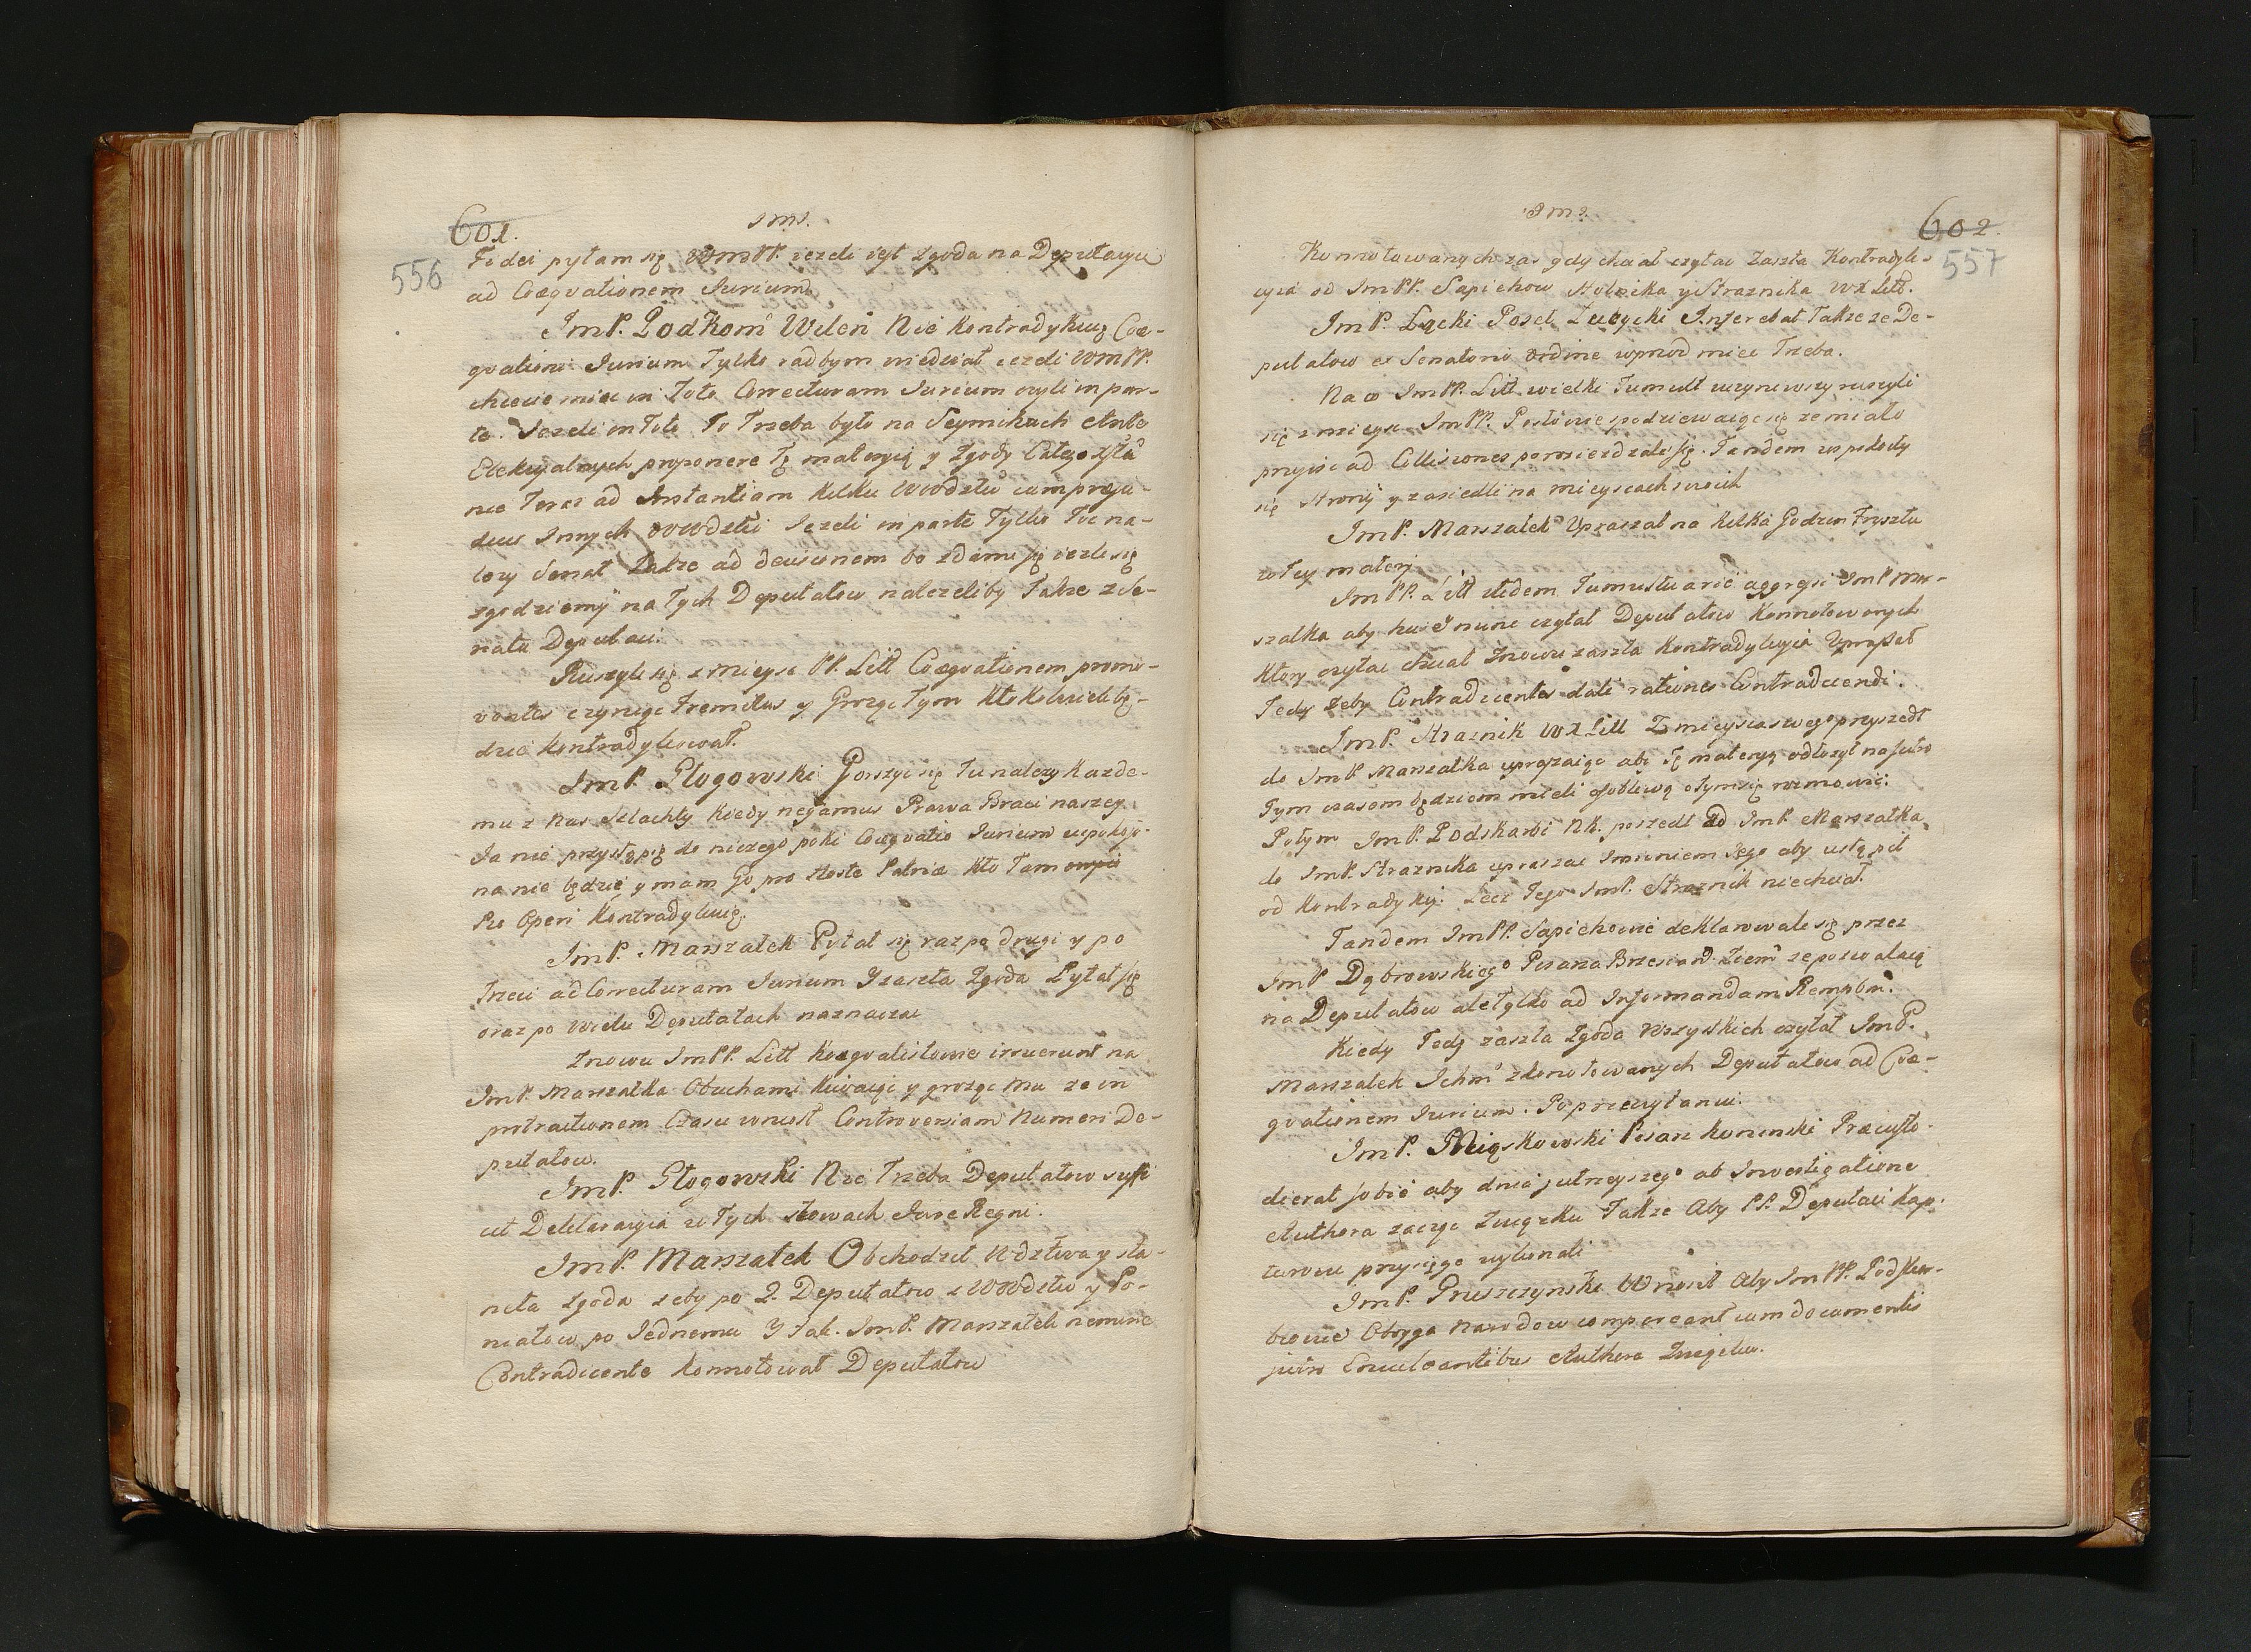 601.
556
Fidei pytam się WMPP. iezeli iest zgoda na Deputacyii
ad Coæqvationem Iurium
ImP. Podkom Wilen Nie kontradykuię Coæ-
qvationi Iurium Tylko radbym wiedział iezeli WMPP.
chcecie miec in Toto Correcturam Iurium czyli in par-
te. Jezeli in Toto To Trzeba było na Seymikach Ante
Elekcyalnych proponere Tę materyią y zgody
nie Teraz ad Instantiam kilku Wwdztw cum præju-
dicio Innych Wwdztw Jezeli in parte Tylko To na-
lezy Senat Takze ad decisionem bo zda mi się iezeli się
zgodziemy na Tych Deputatow nalezeliby Takze z Se-
natu Deputaci.
Ruszyli się z mieysc PP. Litt Coæqvationem promo-
ventes czyniąc fremitus y Grożąc Tym ktokolwiek bę-
dzie kontradykował.
ImP. Głogowski Gorszyc się Tu nalezy kazde-
mu z nas Szlachty kiedy negamus Prawa Braci naszey
Ja nie przystąpię do niczego poki Coæqvatio Iurium uspokoio-
na nie będzie y mam Go pro Hoste Patriæ kto Tam
Operi kontradykuię.
ImP. Marszałek Pytał się raz po drugi y po
Trzeci ad Correcturam Iurium Y zaszła Zgoda Pytał się
oraz po wielu Deputatach naznaczac
Znowu ImPP. Litt Koæqvalistowie irruerunt na
ImP. Marszałka Obuchami kiwaiąc y grożąc Mu ze in
protractionem Czasu wniosł Controversiam Numeri De-
putatow.
ImP. Głogowski Nie Trzeba Deputatow suffi
cit Deklaracyia w Tych słowach Iure Regni.
ImP. Marszałek Obchodził Wdztwa y sta-
neła zgoda zeby po 2. Deputatow z Wwdztw y Po-
wiatow po Iednemu Y Tak ImP. Marszałek nemine
Contradicente konnotował Deputatow
602.
557
Konnotowanych zas gdy chciał czytac Zaszła Kontradyk-
cyia od ImPP. Sapiehow Stolnika y Straznika WX Litt.
ImP. Łącki Poseł Łuczycki Inferebat Takze ze De-
putatow ex Senatorio ordine wprzod miec Trzeba.
Na co ImPP. Litt wielki Tumult uczyniwszy ruszyli
się z mieysc ImPP. Posłowie spodziewaiąc się ze miało
przyisc ad Collisiones porozieżdzali się. Tandem uspokoiły
się Strony y zasiedli na mieyscach swoich
ImP. Marszałek Upraszał na kilka Godzin Frysztu
w Tey materyi
ImPP. Litt itidem Tumultuarie aggressi ImP Mar-
szałka aby hic et nunc czytał Deputatow Konnotowanych
Ktory czytac chciał Znowu zaszła kontradykcyia Uprosił
Tedy zeby Contradicentes dali rationes Contradicendi.
ImP. Straznik WX Litt Z mieysca swego przyszedł
do ImP Marszałka upraszaiąc aby Tę materyią odłozył na Jutro
Tym czasem będziem mieli osobliwą o Tym się rozmowic.
Potym ImP. Podskarbi NK. poszedł ad ImP Marszałka
do ImP. Straznika upraszac Imieniem Jego aby ustąpił
od Kontradykcyi Lecz Tego ImP. Straznik niechciał.
Tandem ImPP. Sapiehowie deklarowali się przez
ImP Dąbrowskiego Pisarza Brzesciań Ziem ze pozwalaią
na Deputatow ale Tylko ad Informandam Rempbm.
Kiedy Tedy zaszła zgoda wszystkich czytał ImP.
Marszałek Ichm zkonotowanych Deputatow ad Coæ-
qvationem Iurium. Po przeczytaniu.
ImP. Miąskowski Pisarz koninski Præcusto-
dierat sobie aby dnia jutrzeyszego ab Investigatione
Authora zacząc Związku Takze Aby PP. Deputaci Kap-
turowi przysięgę wykonali
ImP. Pruszczynski Wnosił Aby ImPP. Podskar-
biowie Oboyga Narodow compareant cum documentis
jutro Authora Związku.